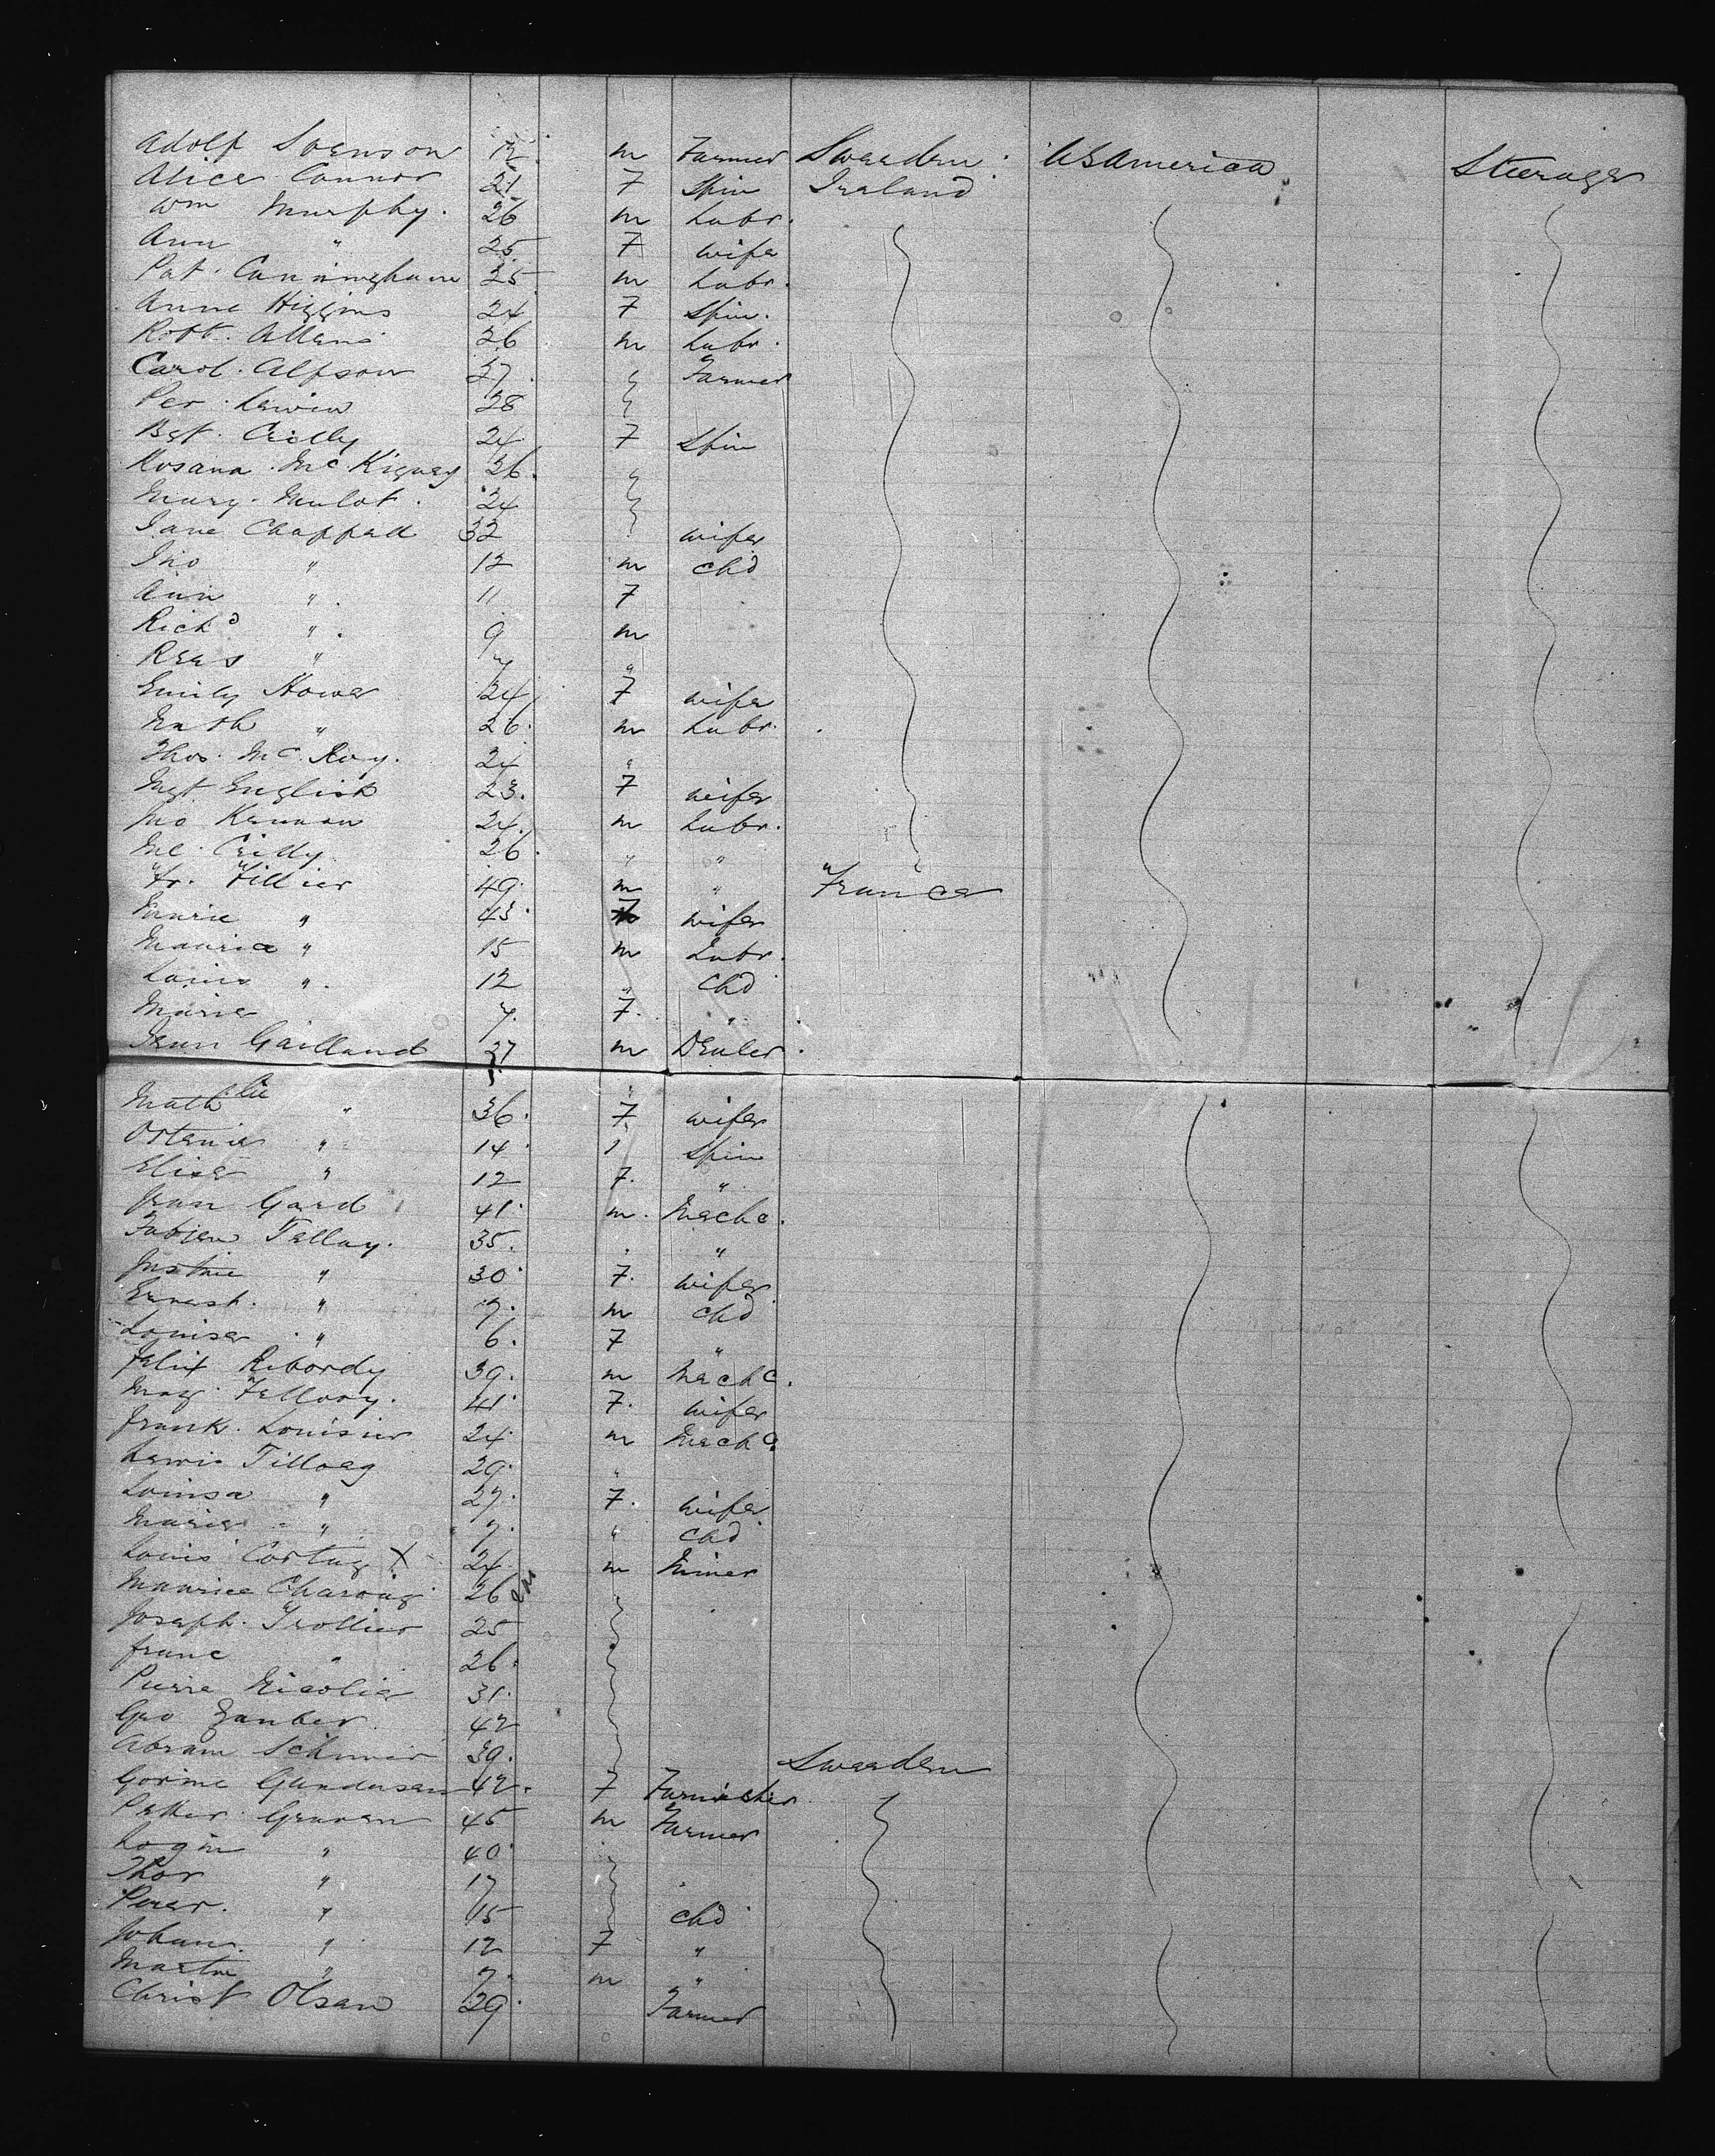 Adolf Svenson 12 m Farmer Sweeden USAmerica Steerage
Alice Connor 21 F Spin Ireland
Wm Murphy. 26 m Labr.
Ann " 25 F wife
Pat. Cunningham 25 m Labr.
Anne Higgins 24 F Spin.
Robt. Allens 26 m Labr.
Carol. Alfson 27 Farmer
Per. Lewin 28
Bgt. Crilly 24 F Spin
Rosana Mc. 26.
Mary. Mulot. 24
Jane Chappell 32 wife
Jno " 12 m Chd
Ann " 11 F
Richd " 9 m
Reas " 7 "
Emily Howe 24 F wife
" 26. m Labr.
Thos. Mc. Roy. 24 "
Mgt English 23. F wife
Jno Kennan 24. m Labr.
Ml. Crilly 26. " "
Fr. Fillier 49. m " France
Marie " 43. F wife
Maurice " 15 m Labr.
Louis " 12 " Chd
Marie 7. F. "
Jean Gailland 37 m Dealer.
Mathlie " 36. F wife
Ortenie " 14. Spin
Elise " 12 F. "
Jean Gard 41. m. Mechc.
Fabien Tellay. 35. "
Justine " 30. F. wife
Ernest. " 7. m Chd
Louise " 6. F "
Felix Ribordy 39. m Mechc.
Mag. 41. F. wife
Frank. Louisier 24. m Mechc.
Lewis 29. "
Louisa " 27. F. wife
Marie " 7. " Chd
Louis X 24 m Miner
Maurice 26
Joseph. Trollier 25
Franc " 26.
Pierre Nicolier 31.
Geo Zanber 42
Abram 39. Sweeden
Gorine Gundersen 42. F
Petter. Graven 45 m Farmer
" 40.
Thor " 17
Peter. " 15 Chd
Johan. " 12 F "
Martin " 7. m "
Christ Olsen 29. Farmer